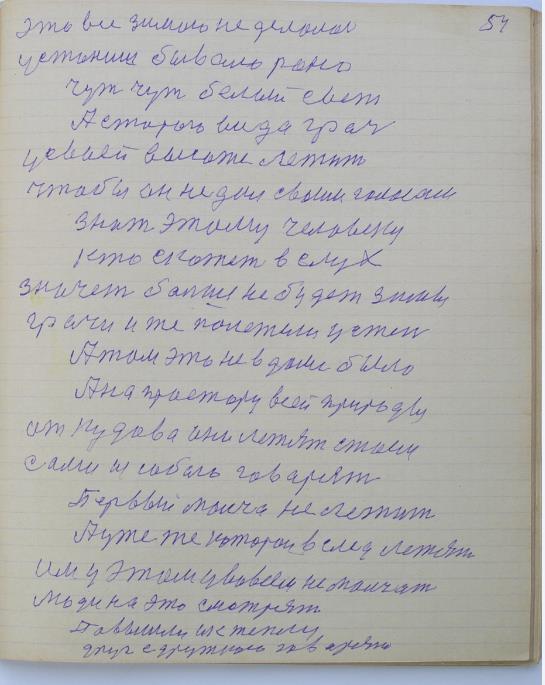 это все зимою не делолос 54
устоним бывало рано
чут чут белый свет
А сторого вида грач
усвоей высоте летит
чтобы он не дал своим голосам
знат этому человеку
кто скажет в слух
значет болши не будет зимы
грачи и же полетели у степ
А там это не в доме было
А на простору всей природы
от кудова они летят стоем
сами и собою говорят
Первый молча не летит
А уже же которои в след летят
им у этом ув овсем не молчат
люди на это смотрят
друг с другного говарято